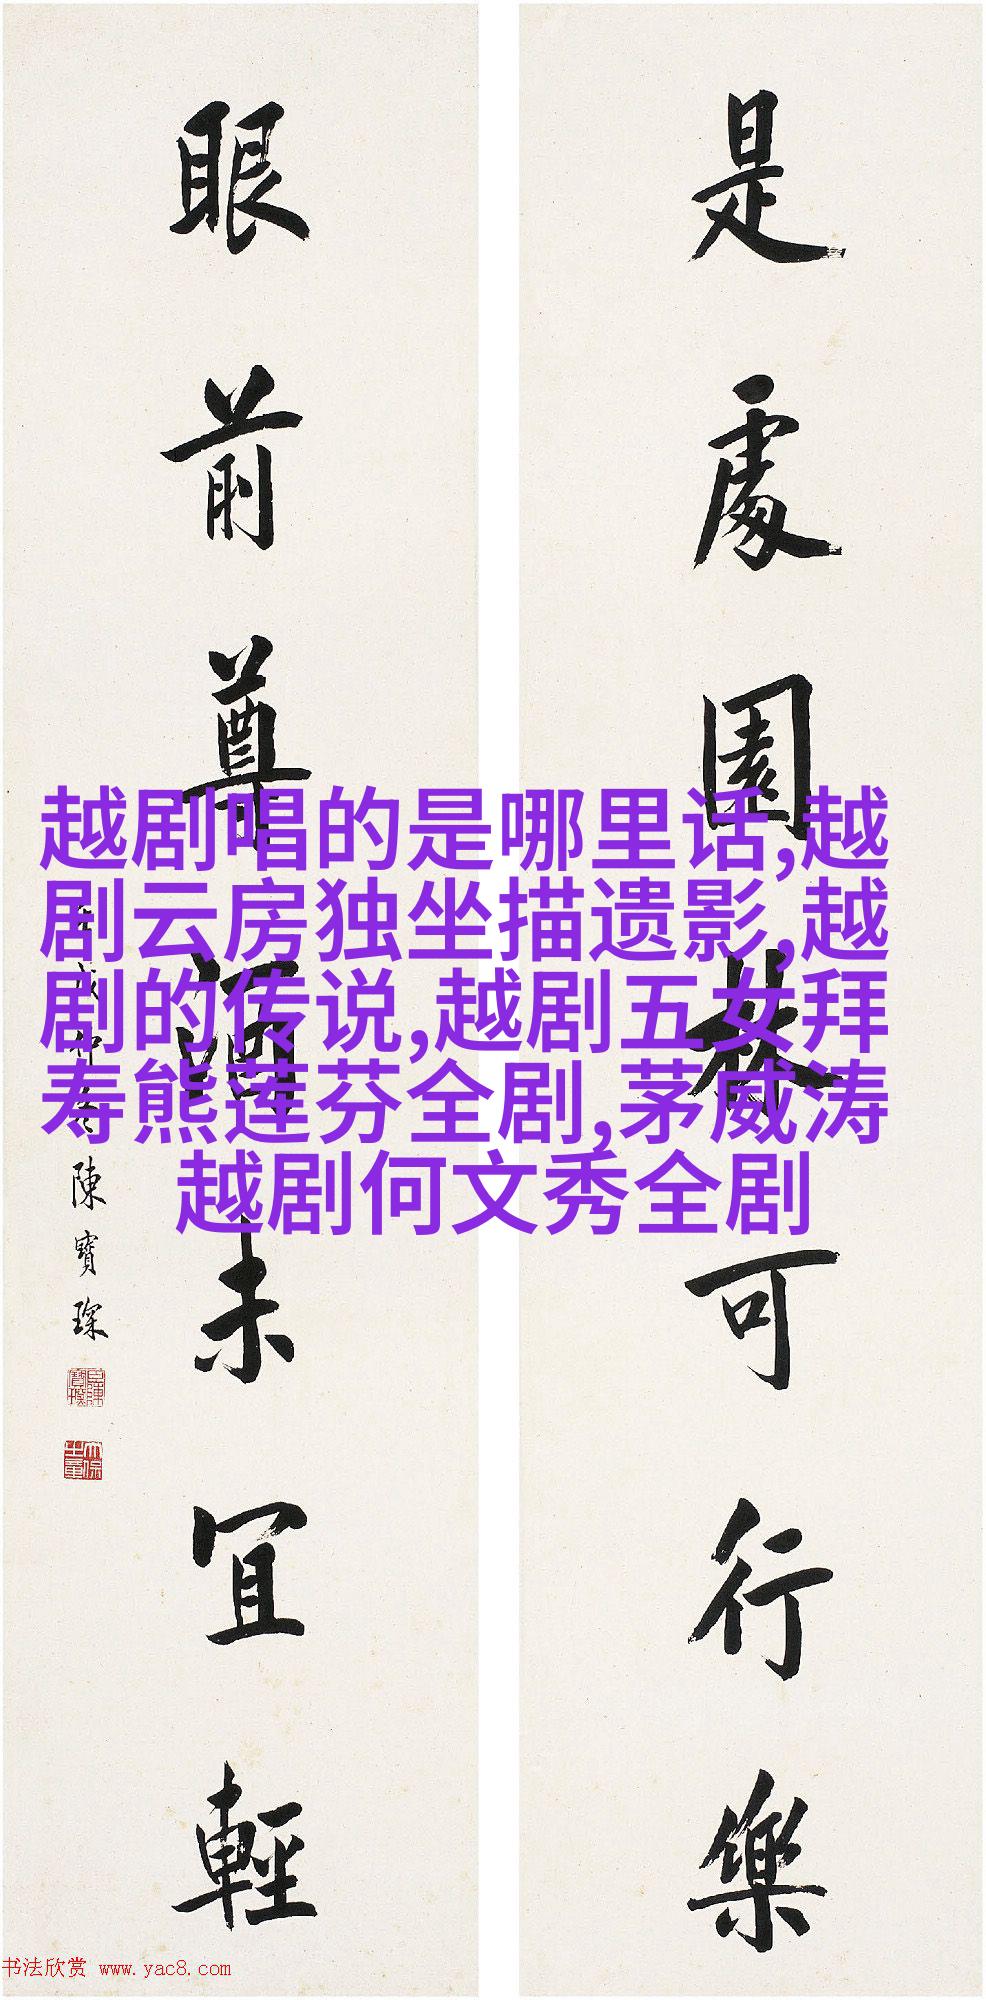 是處園林可行樂
眼前尊酒未宜輕
陳寶琛
越剧唱的是哪里话,越
剧云房独坐描遗影,越
剧的传说,越剧五女拜
寿熊莲芬全剧,茅威涛
越剧何文秀全剧
书法欣赏 www.yac8.com